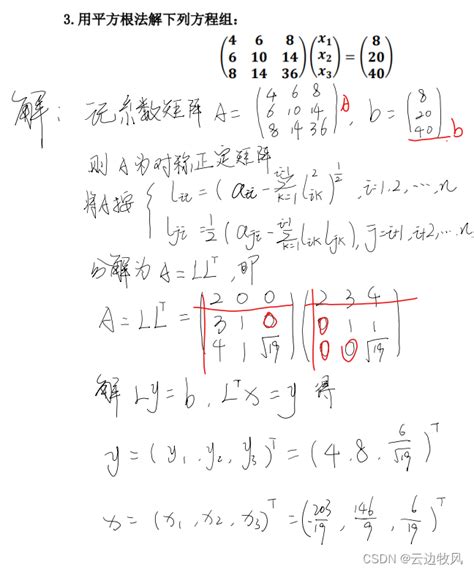 3. 用平方根法解下列方程组：
(4 6 8; 6 10 14; 8 14 36)(x₁; x₂; x₃) = (8; 20; 40)
解：记系数矩阵 A = (4 6 8; 6 10 14; 8 14 36) A , b = (8; 20; 40) b
则 A 为对称正定矩阵
将A按 { l_ii = (a_ii - Σ_{k=1}^{i-1} l_ik²)^{1/2} , i=1,2,…,n
l_ji = 1/2 (a_ji - Σ_{k=1}^{i-1} l_ik l_jk), j=i+1,i+2,…,n
分解为 A=LLᵀ, 即
A=LLᵀ = (2 0 0; 3 1 0; 4 1 √19)(2 3 4; 0 1 1; 0 0 √19)
解 Ly=b, Lᵀx=y 得
y = (y₁, y₂, y₃)ᵀ = (4, 8, 6/√19)ᵀ
x = (x₁, x₂, x₃)ᵀ = (-203/19, 146/9, 6/19)ᵀ
CSDN @云边牧风